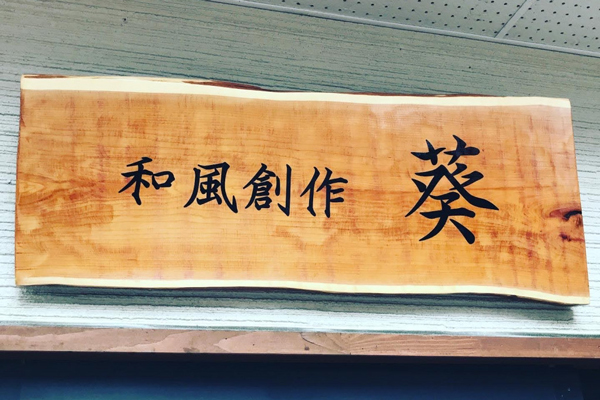 和風創作 葵